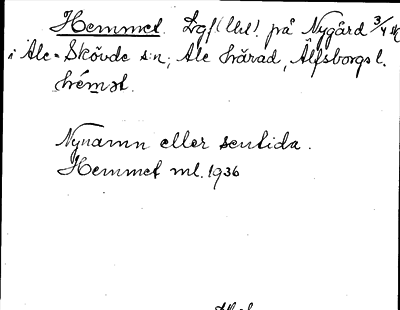 Hemmet. Lgf (Uhl.) på Nygård 3/4 m
i Ale-Skövde s:n, Ale härad, Älfsborgs l.
hémət.
Nynamn eller sentida.
Hemmet ml. 1936